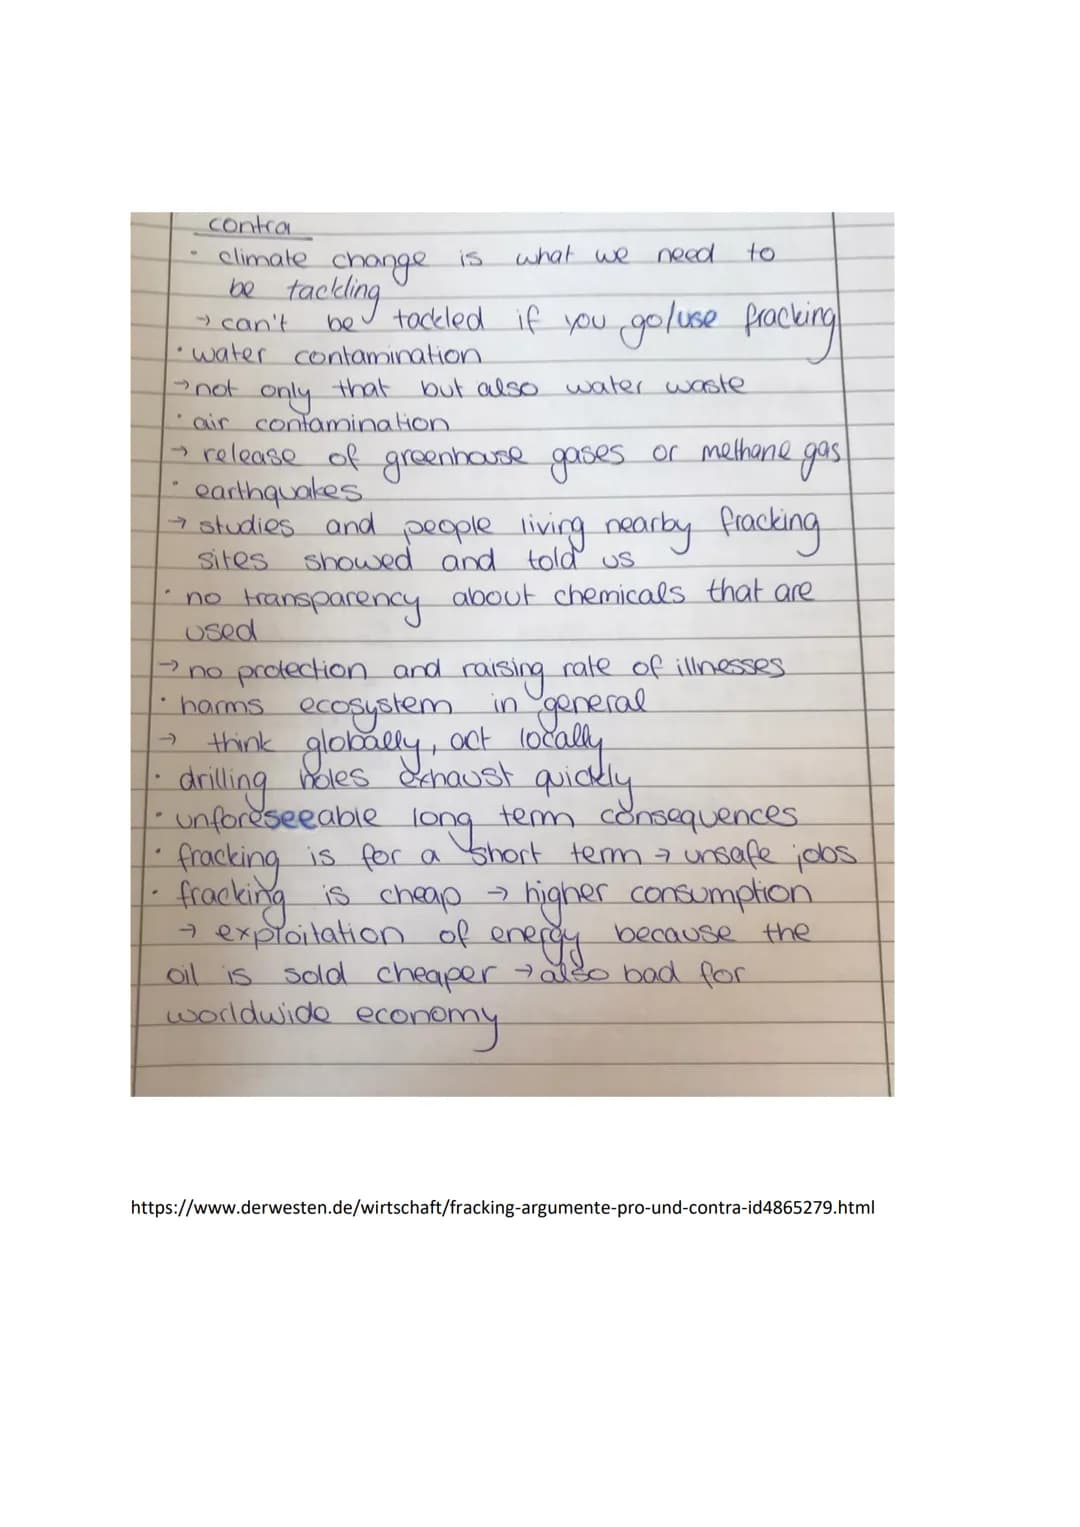 contra
· climate change is what we need to
be tackling
→ can't be tackled if you go/use fracking
· water contamination
→ not only that but also water waste
· air contamination
→ release of greenhouse gases or methane gas
· earthquakes
→ studies and people living nearby fracking
sites showed and told us
· no transparency about chemicals that are
used
→ no protection and raising rate of illnesses
· harms ecosystem in general
→ think globally, act locally
· drilling holes exhaust quickly
· unforeseeable long term consequences
· fracking is for a short term → unsafe jobs
· fracking is cheap → higher consumption
→ exploitation of energy because the
oil is sold cheaper → also bad for
worldwide economy
https://www.derwesten.de/wirtschaft/fracking-argumente-pro-und-contra-id4865279.html